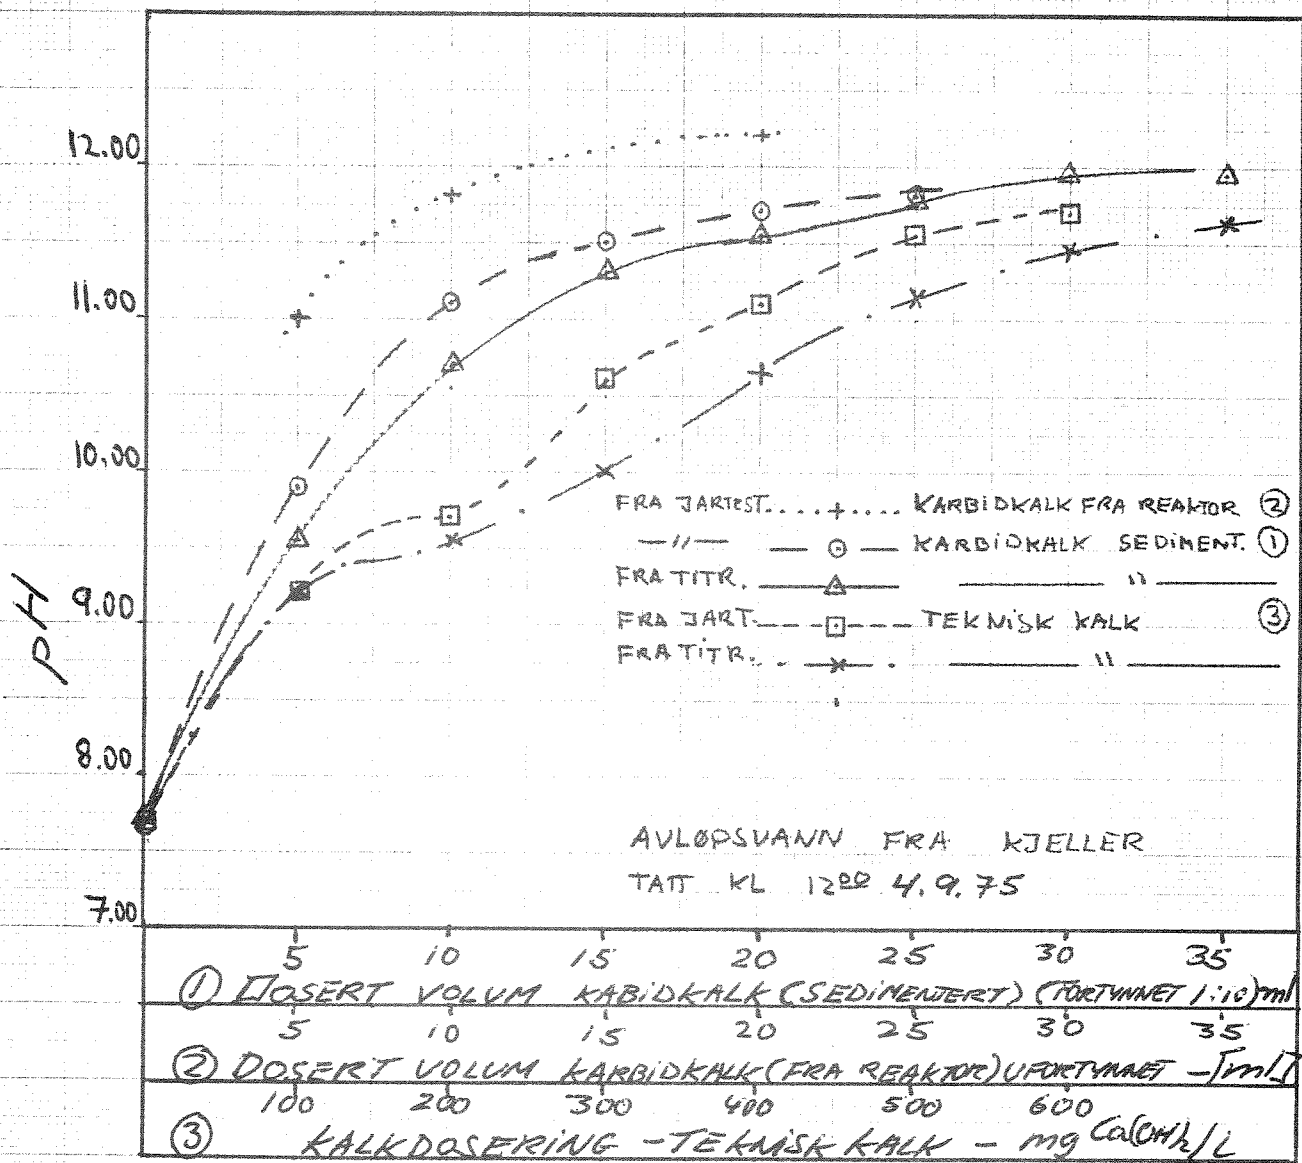 12.00
11.00
10.00
9.00
8.00
7.00
pH
FRA JARTEST.....+.... KARBIDKALK FRA REAKTOR ②
—〃— — ⊙ — KARBIDKALK SEDIMENT. ①
FRA TITR. —△— —— 〃 ——
FRA JART. ---⊡--- TEKNISK KALK ③
FRA TITR. . - —×— . —— 〃 ——
AVLØPSVANN FRA KJELLER
TATT KL 12⁰⁰ 4.9.75
5 10 15 20 25 30 35
① DOSERT VOLUM KABIDKALK (SEDIMENTERT) (FORTYNNET 1:10) ml
5 10 15 20 25 30 35
② DOSERT VOLUM KARBIDKALK (FRA REAKTOR) UFORTYNNET - [ml]
100 200 300 400 500 600
③ KALKDOSERING - TEKNISK KALK - mg Ca(OH)₂/L